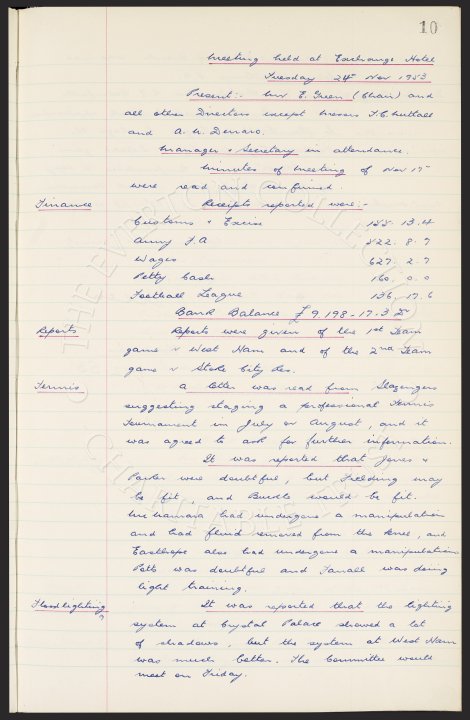 10
Meeting held at Exchange Hotel
Tuesday 24th Nov 1953
Present:- Mr E. Green (Chair) and
all other Directors except Messrs T.C. Nuttall
and A. W. Denaro.
Manager & Secretary in attendance.
Minutes of Meeting of Nov 17th
were read and confirmed.
Finance Receipts reported were:-
Customs & Excise 188. 13. 4
Army F.A 822. 8. 7
Wages 627. 2. 7
Petty Cash 160. 0. 0
Football League 136. 17. 6
Bank Balance £9,198-17-3
Reports Reports were given of the 1st Team
game v West Ham and of the 2nd Team
game v Stoke City Res.
Tennis A letter was read from Slazengers
suggesting staging a professional Tennis
Tournament in July or August, and it
was agreed to ask for further information.
It was reported that Jones &
Parker were doubtful, but Fielding may
be fit, and Buckle would be fit.
McNamara had undergone a manipulation
and had fluid removed from the knee, and
Easthope also had undergone a manipulation
Potts was doubtful and Farrall was doing
light training.
Floodlighting It was reported that the lighting
system at Crystal Palace showed a lot
of shadows, but the system at West Ham
was much better. The Committee would
meet on Friday.
© THE EVERTON COLLECTION
CHARITABLE TRUST